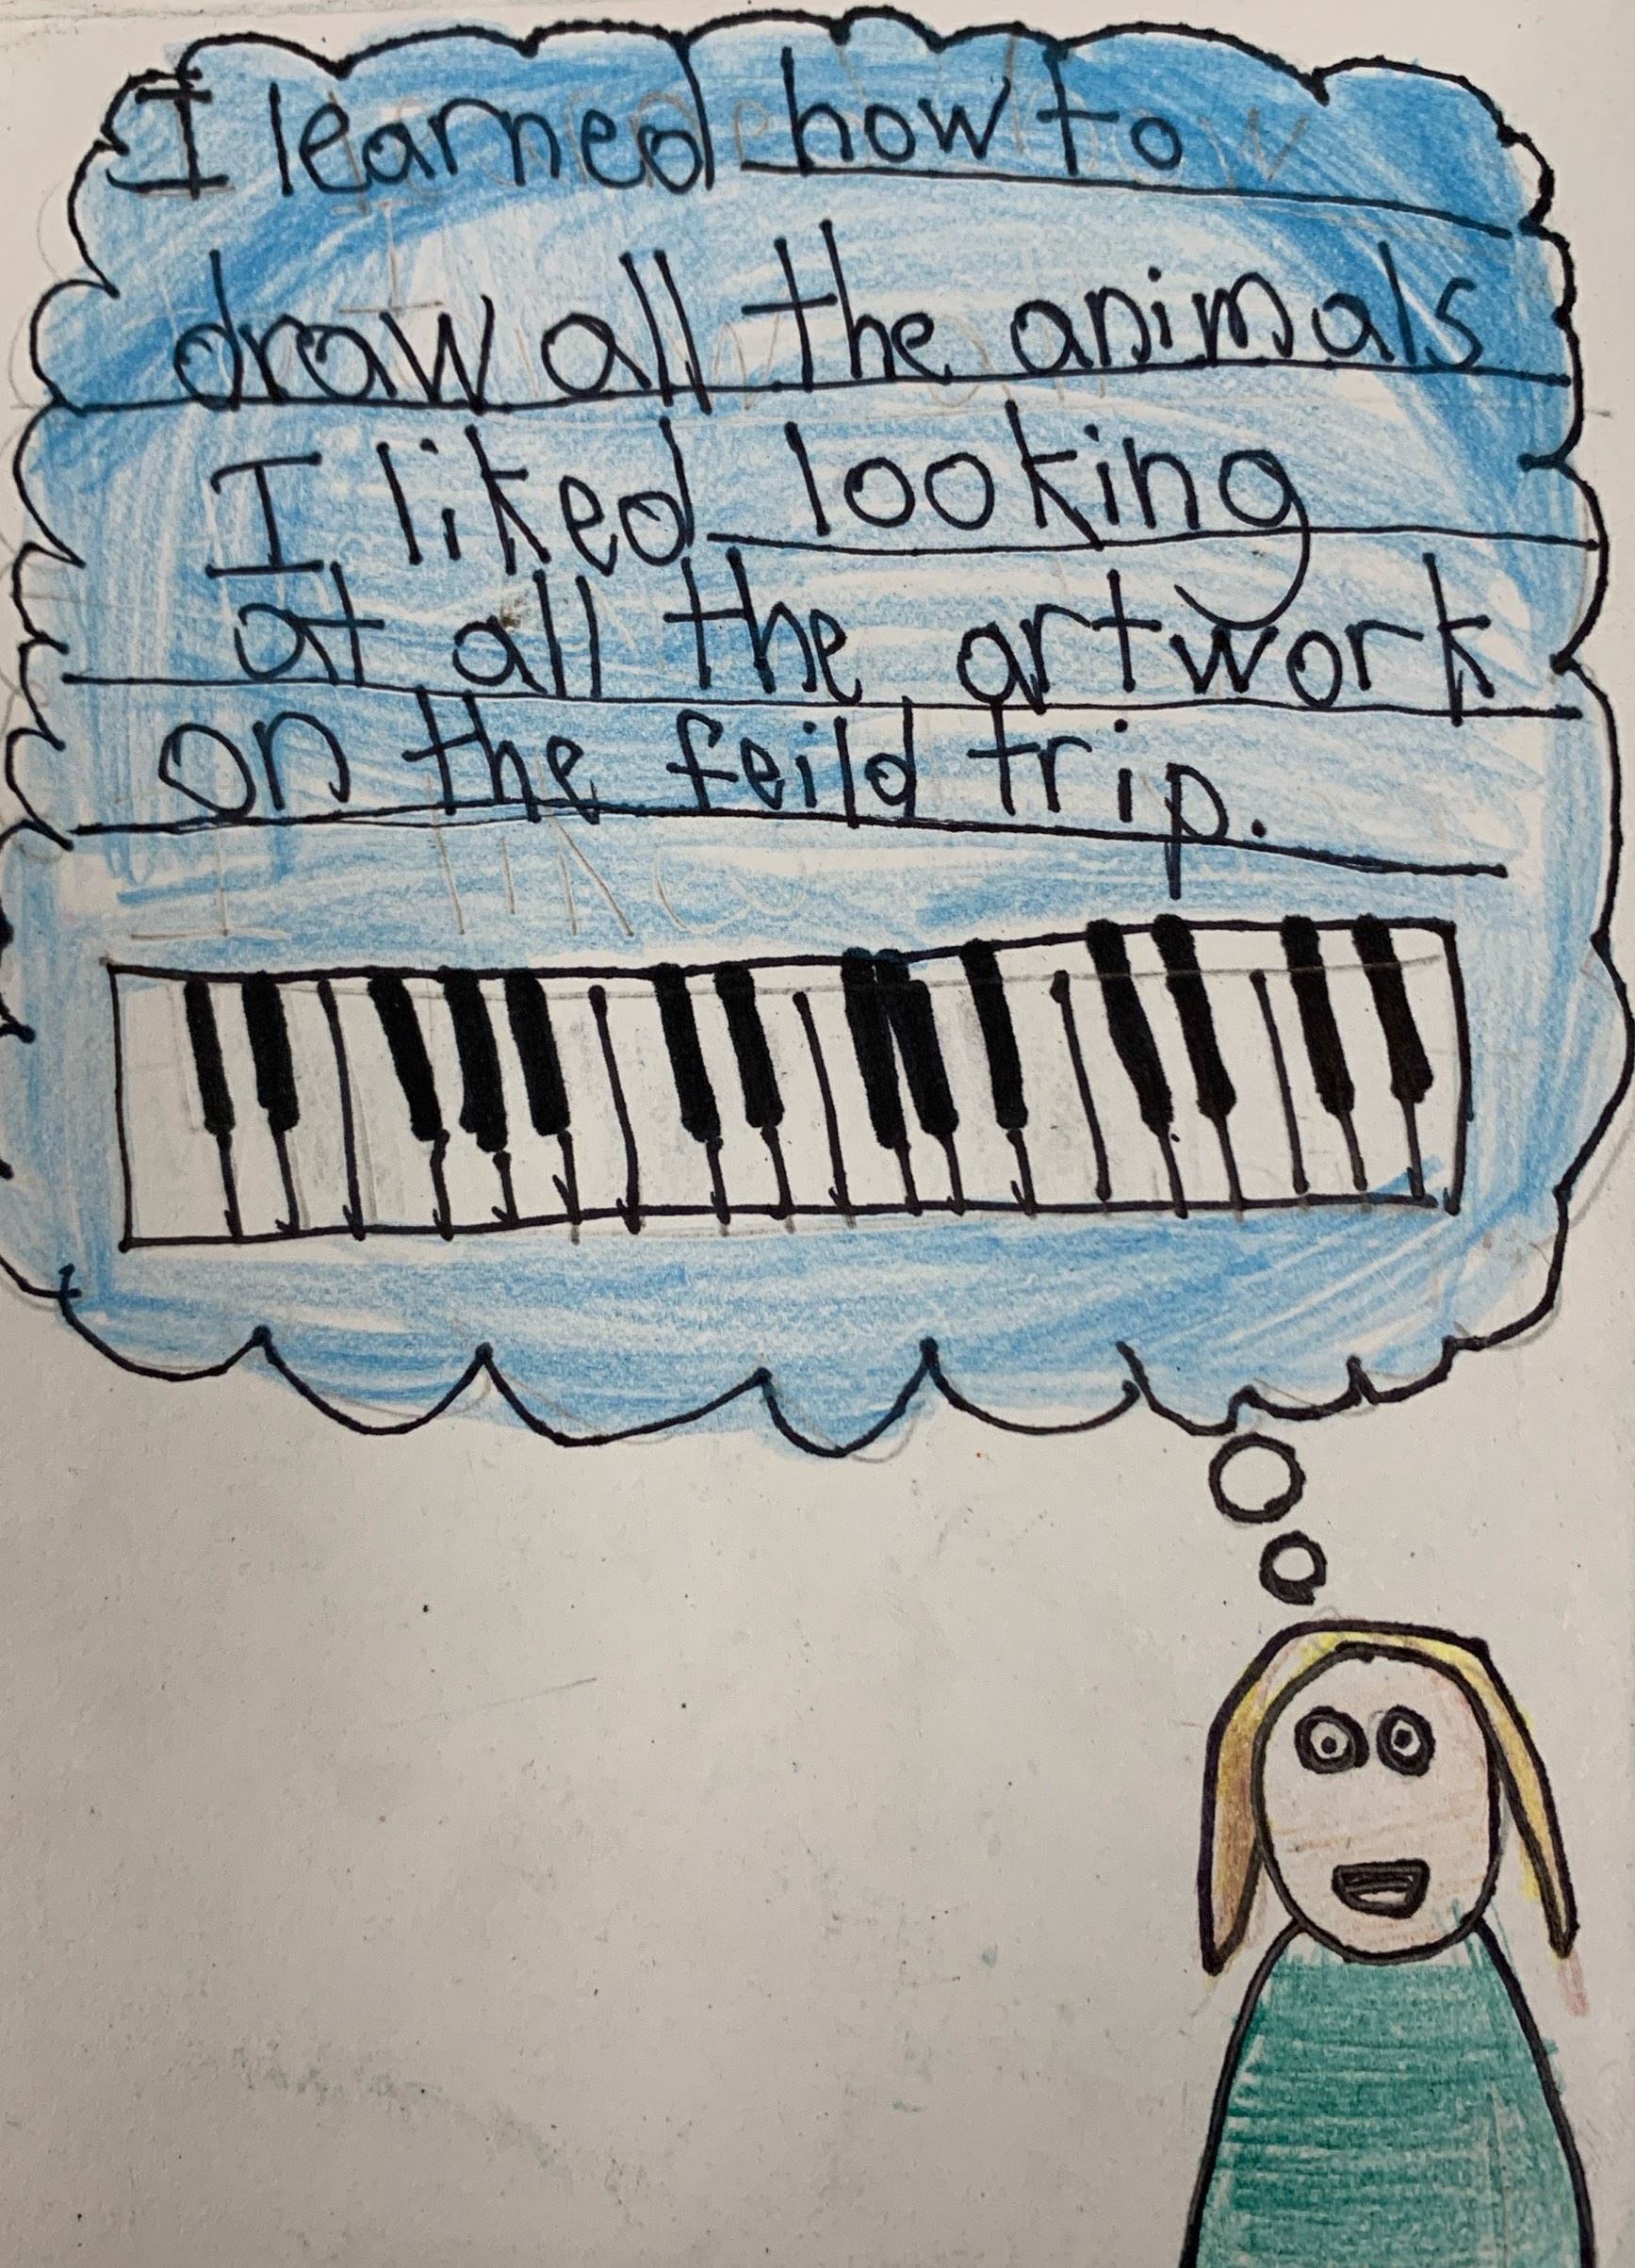 I learned how to
draw all the animals
I liked looking
at all the artwork
on the feild trip.